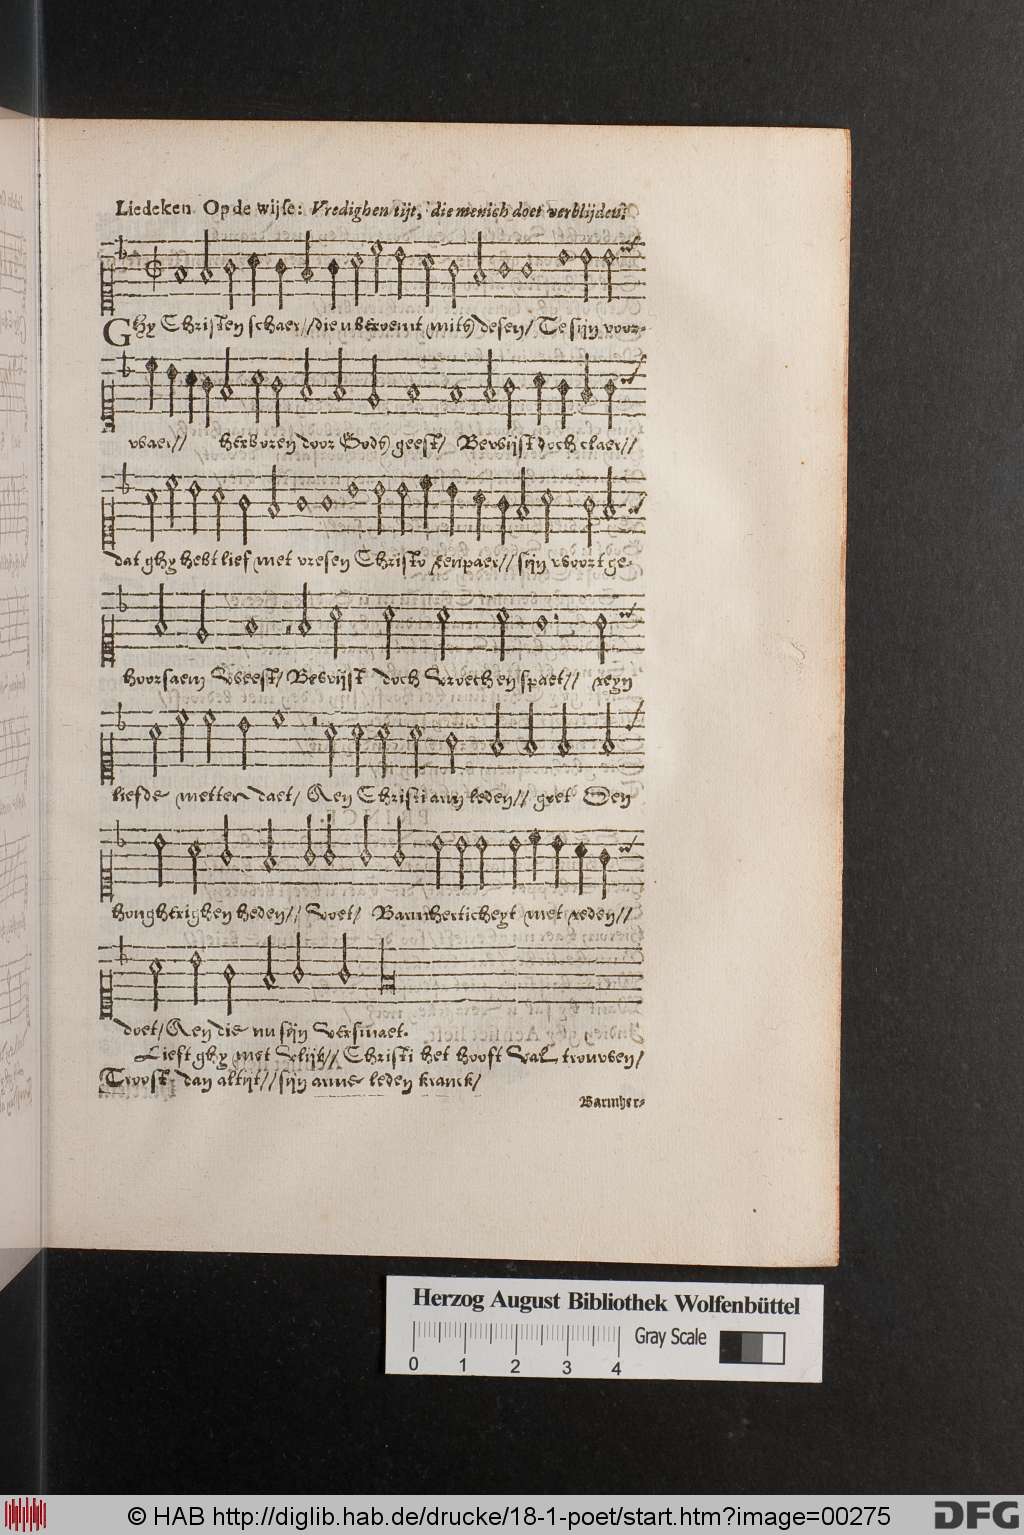 Liedeken Op de wijse: Vredighen tijt, die menich doet verblijden:
Ghy Christen schaer // die u beroemt mits desen / Te sijn voor-
waer // herboren door Gods geest / Bewijst doch claer //
dat ghy hebt lief met vresen Christo eenpaer // sijn woort ge-
hoorsaem weest / Bewijst doch vroech en spaet // reyn
liefde metter daet / Aen Christi arm leden // goet Den
hongherighen heden // voet / Barmherticheyt met reden //
doet / Aen die nu sijn versmaet.
Lieft ghy met vlijt // Christi het hooft vol trouwen /
Troost dan altijt // sijn arme leden kranck /
Barmher-
Herzog August Bibliothek Wolfenbüttel
Gray Scale
0 1 2 3 4
© HAB http://diglib.hab.de/drucke/18-1-poet/start.htm?image=00275
DFG